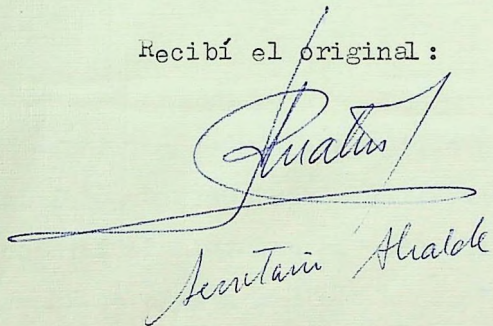 Recibí el original:
Secretario Alcalde